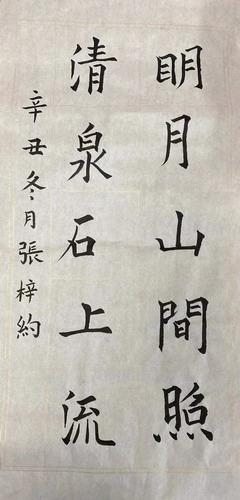 明月山間照
清泉石上流
辛丑冬月張梓約